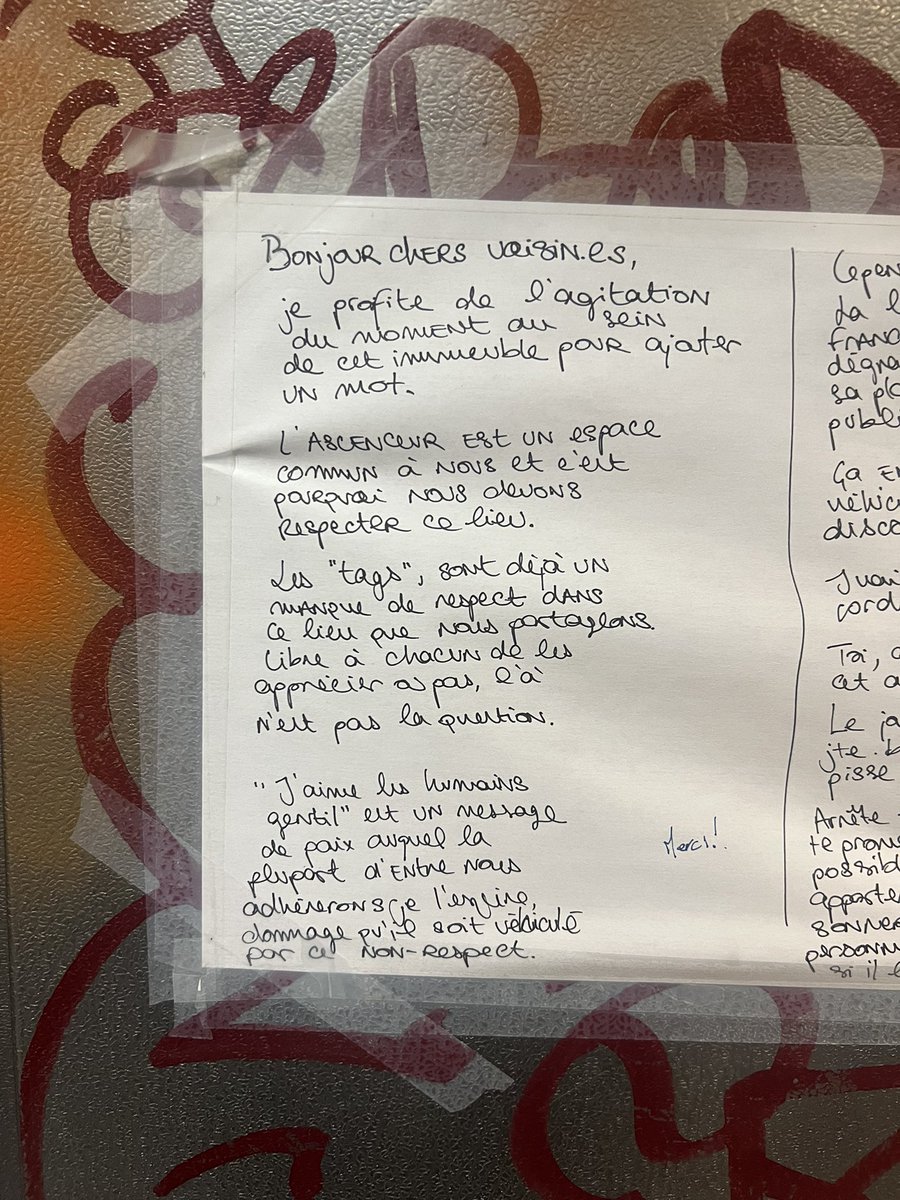 Bonjour chers voisin.es,
je profite de l'agitation
du moment au sein
de cet immeuble pour ajouter
un mot.
L'ASCENCEUR EST UN espace
commun à nous et c'est
pourquoi nous devons
respecter ce lieu.
Les "tags", sont déjà un
manque de respect dans
ce lieu que nous partageons.
Libre à chacun de les
apprécier ou pas, l'à
n'est pas la question.
"J'aime les humains
gentil" est un message
de paix auquel la
plupart d'entre nous
adhérerons (je l'espère,
dommage qu'il soit véhiculé
par ce non-respect.
Merci!
Cepen
La l
FRANC
dégra
sa pl
publi
Ça en
véhic
disco
J'vai
cord
Toi, c
cet a
Le ja
jte.b
pisse
Arrête
te prom
possib
apparte
sonner
personn
si il